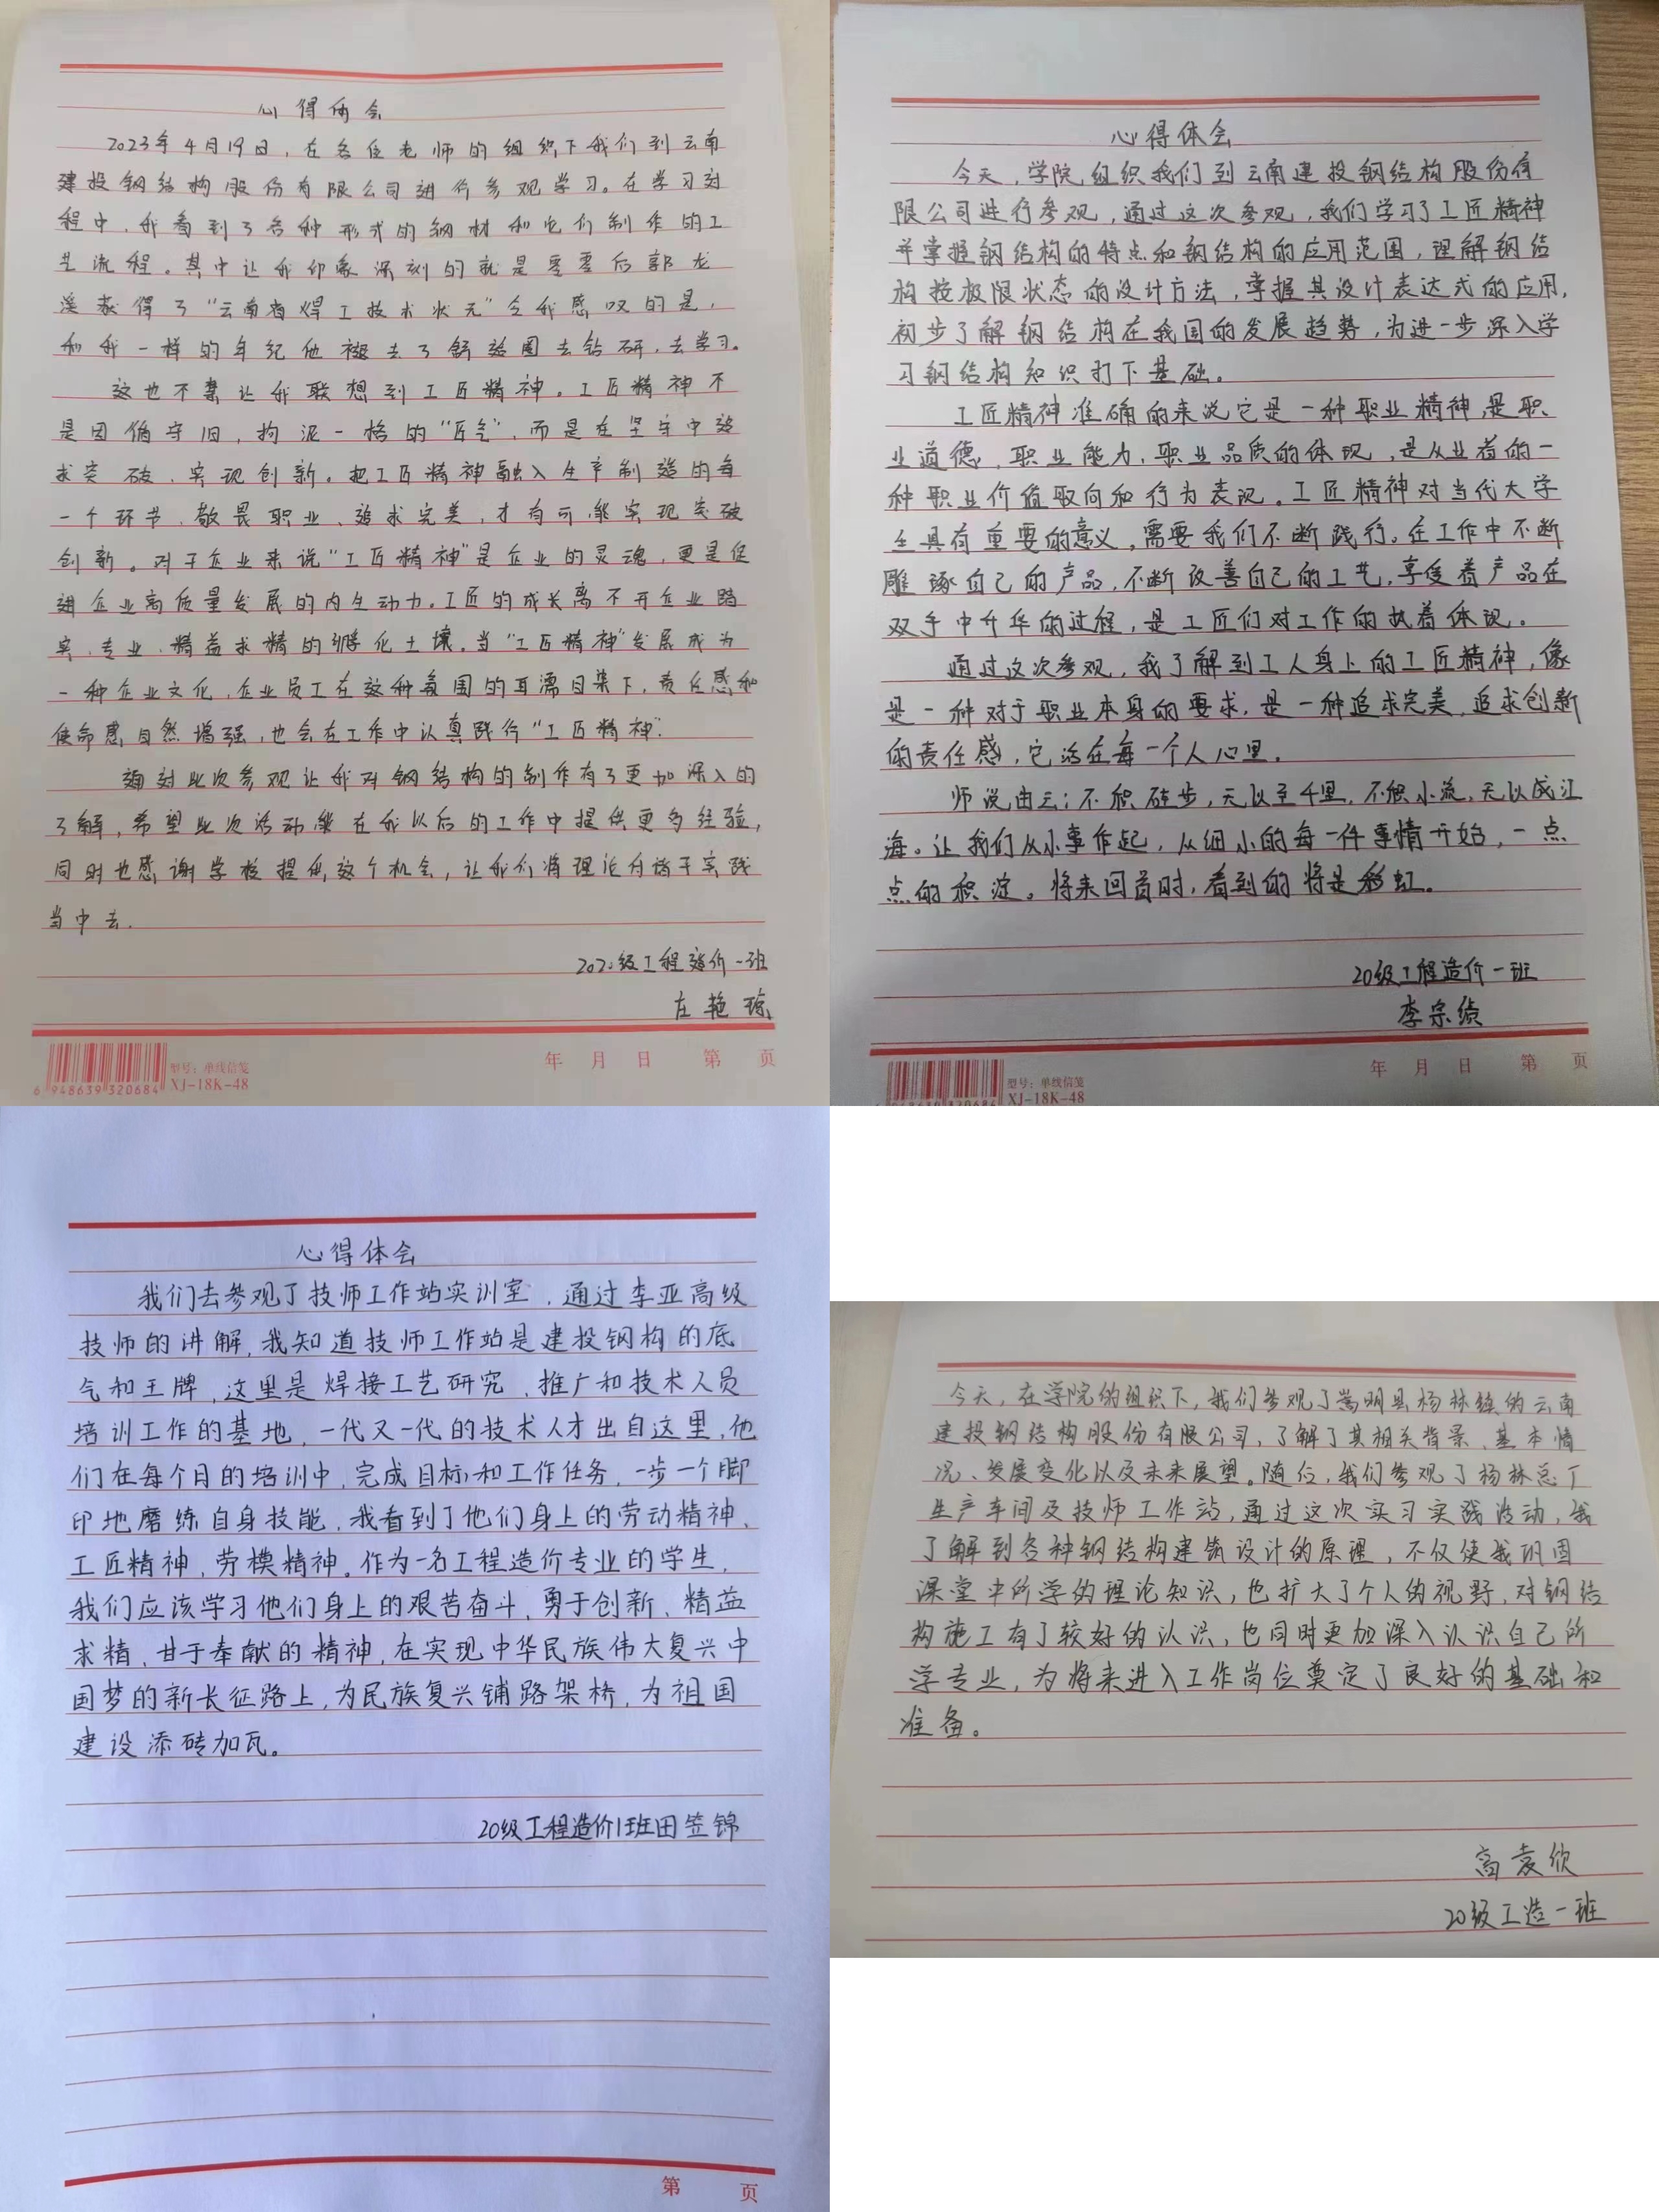 心得体会
2023年4月19日,在各位老师的组织下我们到云南
建投钢结构股份有限公司进行参观学习。在学习过
程中,我看到了各种形式的钢材和它们制作的工
艺流程。其中让我印象深刻的就是零零后郭龙
溪获得了“云南省焊工技术状元”令我感叹的是,
和我一样的年纪他褪去了舒适圈去钻研,去学习。
这也不禁让我联想到工匠精神。工匠精神不
是因循守旧,拘泥一格的“匠气”,而是在坚守中追
求突破、实现创新。把工匠精神融入生产制造的每
一个环节,敬畏职业、追求完美,才有可能实现突破
创新。对于企业来说“工匠精神”是企业的灵魂,更是促
进企业高质量发展的内生动力。工匠的成长离不开企业踏
实、专业、精益求精的孵化土壤。当“工匠精神”发展成为
一种企业文化,企业员工在这种氛围的耳濡目染下,责任感和
使命感自然增强,也会在工作中认真践行“工匠精神”.
通过此次参观让我对钢结构的制作有了更加深入的
了解,希望此次活动能在我以后的工作中提供更多经验,
同时也感谢学校提供这个机会,让我们将理论付诸于实践
当中去.
2020级工程造价一班
左艳琼
年 月 日 第 页
6 948639 320684
型号:单线信笺
XJ-18K-48
心得体会
今天,学院组织我们到云南建投钢结构股份有
限公司进行参观,通过这次参观,我们学习了工匠精神
并掌握钢结构的特点和钢结构的应用范围,理解钢结
构按极限状态的设计方法,掌握其设计表达式的应用,
初步了解钢结构在我国的发展趋势,为进一步深入学
习钢结构知识打下基础。
工匠精神准确的来说它是一种职业精神,是职
业道德、职业能力、职业品质的体现,是从业者的一
种职业价值取向和行为表现。工匠精神对当代大学
生具有重要的意义,需要我们不断践行。在工作中不断
雕琢自己的产品,不断改善自己的工艺,享受着产品在
双手中升华的过程,是工匠们对工作的执着体现。
通过这次参观,我了解到工人身上的工匠精神,像
是一种对于职业本身的要求,是一种追求完美、追求创新
的责任感,它活在每一个人心里。
师说由云:不积硅步,无以至千里,不积小流,无以成江
海。让我们从小事作起,从细小的每一件事情开始,一点
点的积淀。将来回首时,看到的将是彩虹。
20级工程造价一班
李宗缋
年 月 日 第 页
型号:单线信笺
XJ-18K-48
心得体会
我们去参观了技师工作站实训室,通过李亚高级
技师的讲解,我知道技师工作站是建投钢构的底
气和王牌,这里是焊接工艺研究、推广和技术人员
培训工作的基地,一代又一代的技术人才出自这里,他
们在每个月的培训中,完成目标和工作任务,一步一个脚
印地磨练自身技能,我看到了他们身上的劳动精神、
工匠精神,劳模精神。作为一名工程造价专业的学生,
我们应该学习他们身上的艰苦奋斗,勇于创新、精益
求精、甘于奉献的精神,在实现中华民族伟大复兴中
国梦的新长征路上,为民族复兴铺路架桥,为祖国
建设添砖加瓦。
20级工程造价1班田笠锦
第 页
今天,在学院的组织下,我们参观了嵩明县杨林镇的云南
建投钢结构股份有限公司,了解了其相关背景、基本情
况、发展变化以及未来展望。随后,我们参观了杨林总厂
生产车间及技师工作站,通过这次实习实践活动,我
了解到各种钢结构建筑设计的原理,不仅使我巩固
课堂中所学的理论知识,也扩大了个人的视野,对钢结
构施工有了较好的认识,也同时更加深入认识自己所
学专业,为将来进入工作岗位奠定了良好的基础和
准备。
高袁欣
20级工造一班